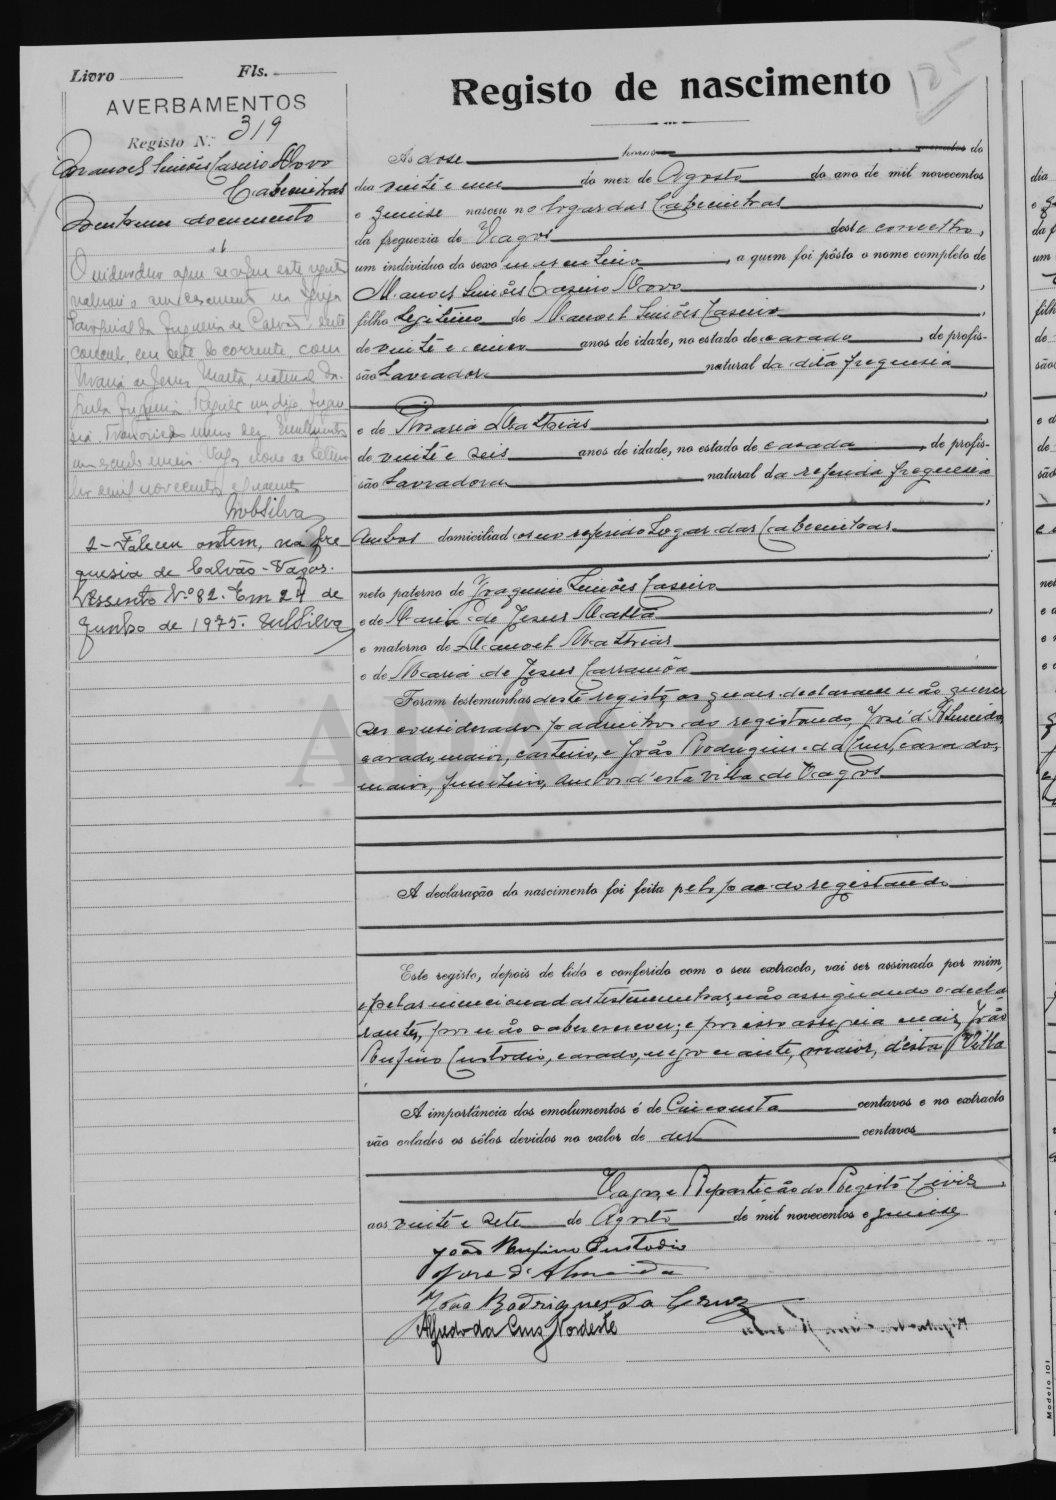 Livro Fls.
AVERBAMENTOS
Registo N.º 319
Manoel Simões Caseiro Novo
Cabecinhas
Nenhum documento
1
O individuo a que se refere este registo
casamento na Igreja
Paroquial da freguesia de Calvão, deste
concelho, em sete do corrente, com
Maria de Jesus Marta, natural da
dita freguesia.
um escudo e meio. Vagos, nove de Setem-
bro de mil novecentos e quarenta
MobSilva
2 - Faleceu ontem, na fre-
guesia de Calvão - Vagos.
Assento N.º 82. Em 24 de
Junho de 1975. MobSilva
125
Registo de nascimento
Ás dose horas minutos do
dia vinte e um do mez de Agosto do ano de mil novecentos
e quinse nasceu no logar das Cabecinhas
da freguezia de Vagos deste concelho,
um individuo do sexo masculino, a quem foi pôsto o nome completo de
Manoel Simões Caseiro Novo,
filho legitimo de Manoel Simões Caseiro,
de vinte e cinco anos de idade, no estado de casado, de profis-
são Lavrador natural da dita freguesia
e de Maria Mathias
de vinte e seis anos de idade, no estado de casada, de profis-
são Lavradora natural da referida freguesia
Ambos domiciliados no referido Logar das Cabecinhas
neto paterno de Joaquim Simões Caseiro
e de Maria de Jesus Matta,
e materno de Manoel Mathias
e de Maria de Jesus Carramôa
Foram testemunhas deste registo, as quaes declararam não querer
ser considerados padrinhos do registando, José d'Almeida,
casado, maior, carteiro, e João Rodrigues da Cruz, casado,
maior, funileiro, ambos d'esta villa de Vagos
A declaração do nascimento foi feita pelo pae do registando
Este registo, depois de lido e conferido com o seu extracto, vai ser assinado por mim,
e pelas mencionadas testemunhas, não assignando o decla
rante, por não saber escrever; e por isso assigna mais, João
Rufino Custodio, casado, negociante, maior, d'esta Villa
A importância dos emolumentos é de Cincoenta centavos e no extracto
vão colados os sêlos devidos no valor de dez centavos
Vagos, e Repartição do Registo Civil,
aos vinte e sete de Agosto de mil novecentos e quinse
João Rufino Custodio
José d'Almeida
João Rodrigues da Cruz
Alfredo da Cruz Nordeste
Modelo 101